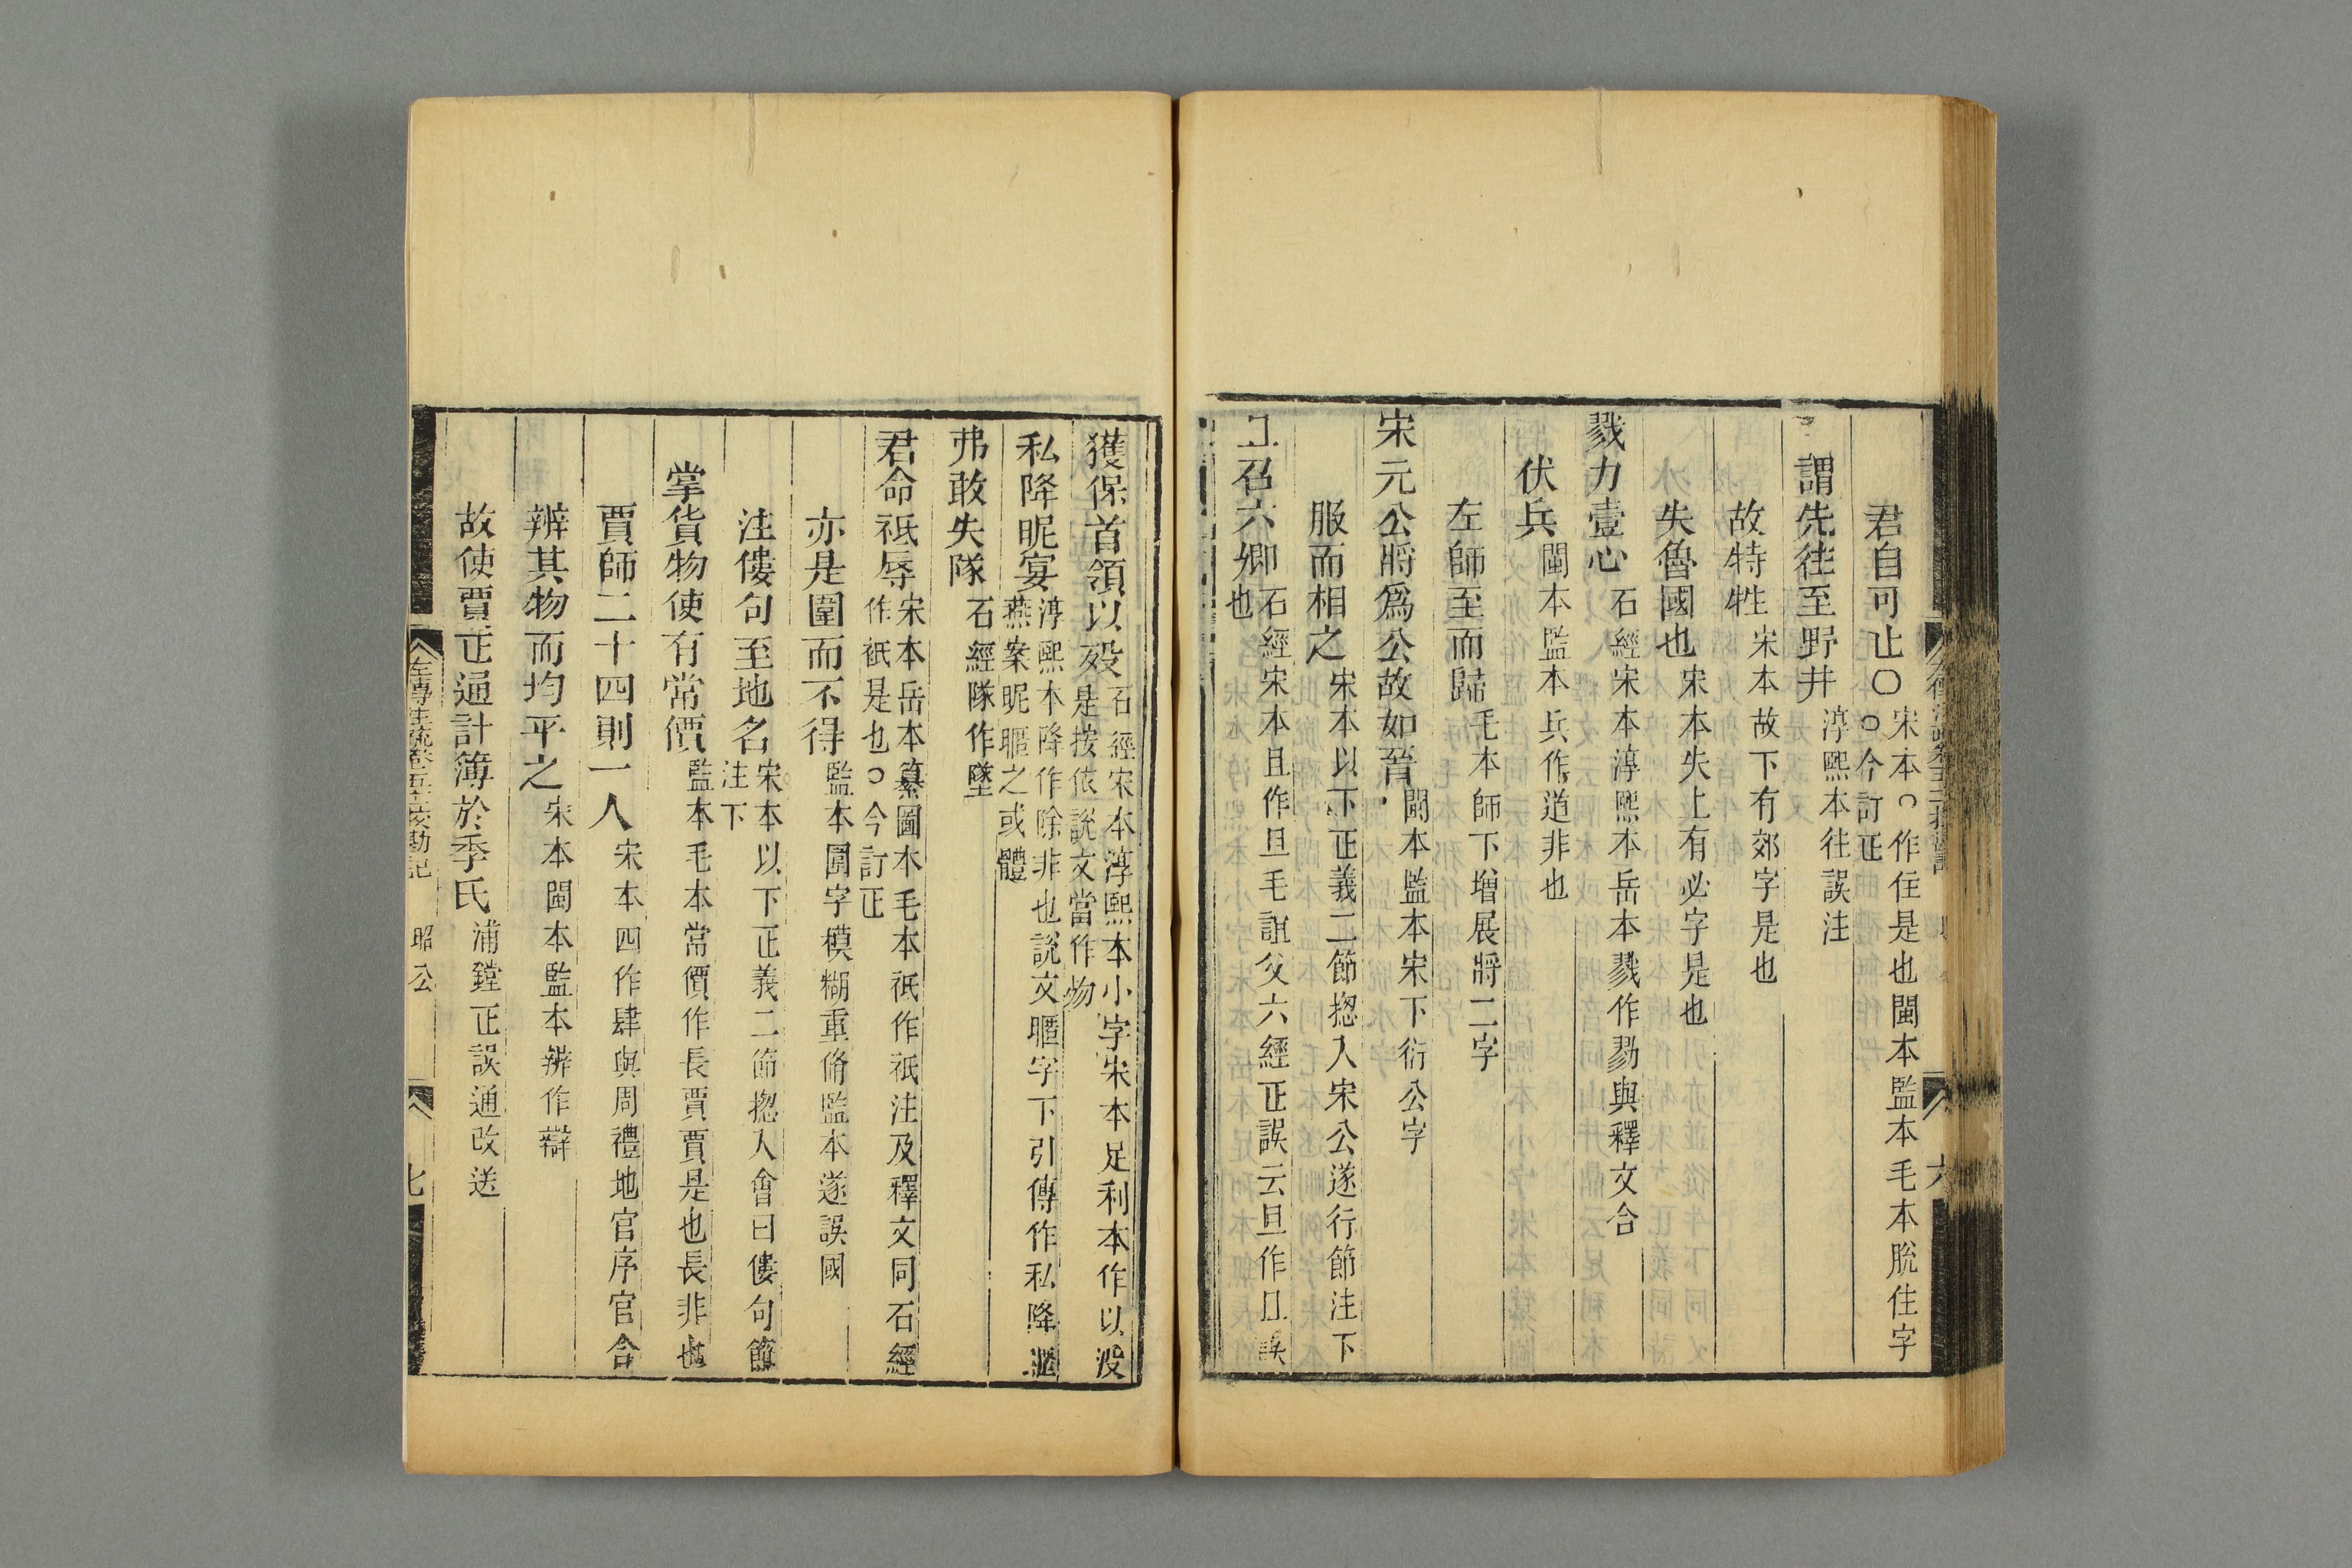 君自可止〇宋本〇作住是也閩本監本毛本脫住字〇今訂正
謂先往至野井淳熙本往誤注
故特牲宋本故下有郊字是也
失魯國也宋本失上有必字是也
戮力壹心石經宋本淳熙本岳本戮作勠與釋文合
伏兵閩本監本兵作道非也
左師至而歸毛本師下增展將二字
宋元公將爲公故如晉閩本監本宋下衍公字
服而相之宋本以下正義二節揔入宋公遂行節注下
召六卿石經宋本且作旦毛誼父六經正誤云旦作誤也
獲保首領以歿石經宋本淳熙本小字宋本足利本作以沒是按依說文當作歾
私降昵宴淳熙本降作除非也說文暱字下引傳作私降暱燕案昵暱之或體
弗敢失隊石經隊作墜
君命祇辱宋本岳本纂圖本毛本祇作祗注及釋文同石經作衹是也〇今訂正
亦是圍而不得監本圍字模糊重脩監本遂誤國
注僂句至地名宋本以下正義二節揔入會曰僂句節注下
掌貨物使有常價監本毛本常價作長賈賈是也長非也
賈師二十四則一人宋本四作肆與周禮地官序官合
辨其物而均平之宋本閩本監本辨作辯
故使賈正通計簿於季氏浦鏜正誤通改送
左傳注疏卷五十一挍勘記 昭公 七